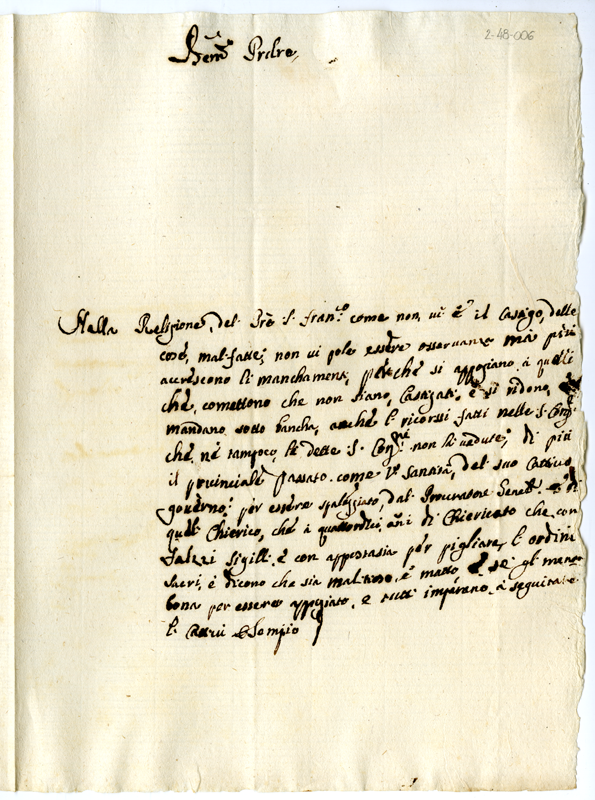 2-48-006
Bem̃o Prdre,
Nella Religione, del Prẽ S. Fran.co come non vi è il Castigo, delle
cose, mal-fatte; non vi pole essere osservanza ma più
accrescono li manchamenti, perche si appogiano à quelli
che, comettono che non siano, Castigati, e si ridono,
mandano sotto bancha, anche li ricorsi fatti nelle S. Cong.
che, ne tampoco, le dette S. Cong.ni non li vedute; di più
il provinciale passato come Vr̃a Santità, del suo Cattivo
governo: per essere spalegiato, dal Procuratore Generle
quel Chierico, che à quattordici añi di Chiericato che con
falzi sigilli, è con appostasia per pigliare, l'ordini
sacri, è dicono che sia, è matto se gl mena
bona per essere appogiato, e tutti imparano, à seguitare
l Esempio